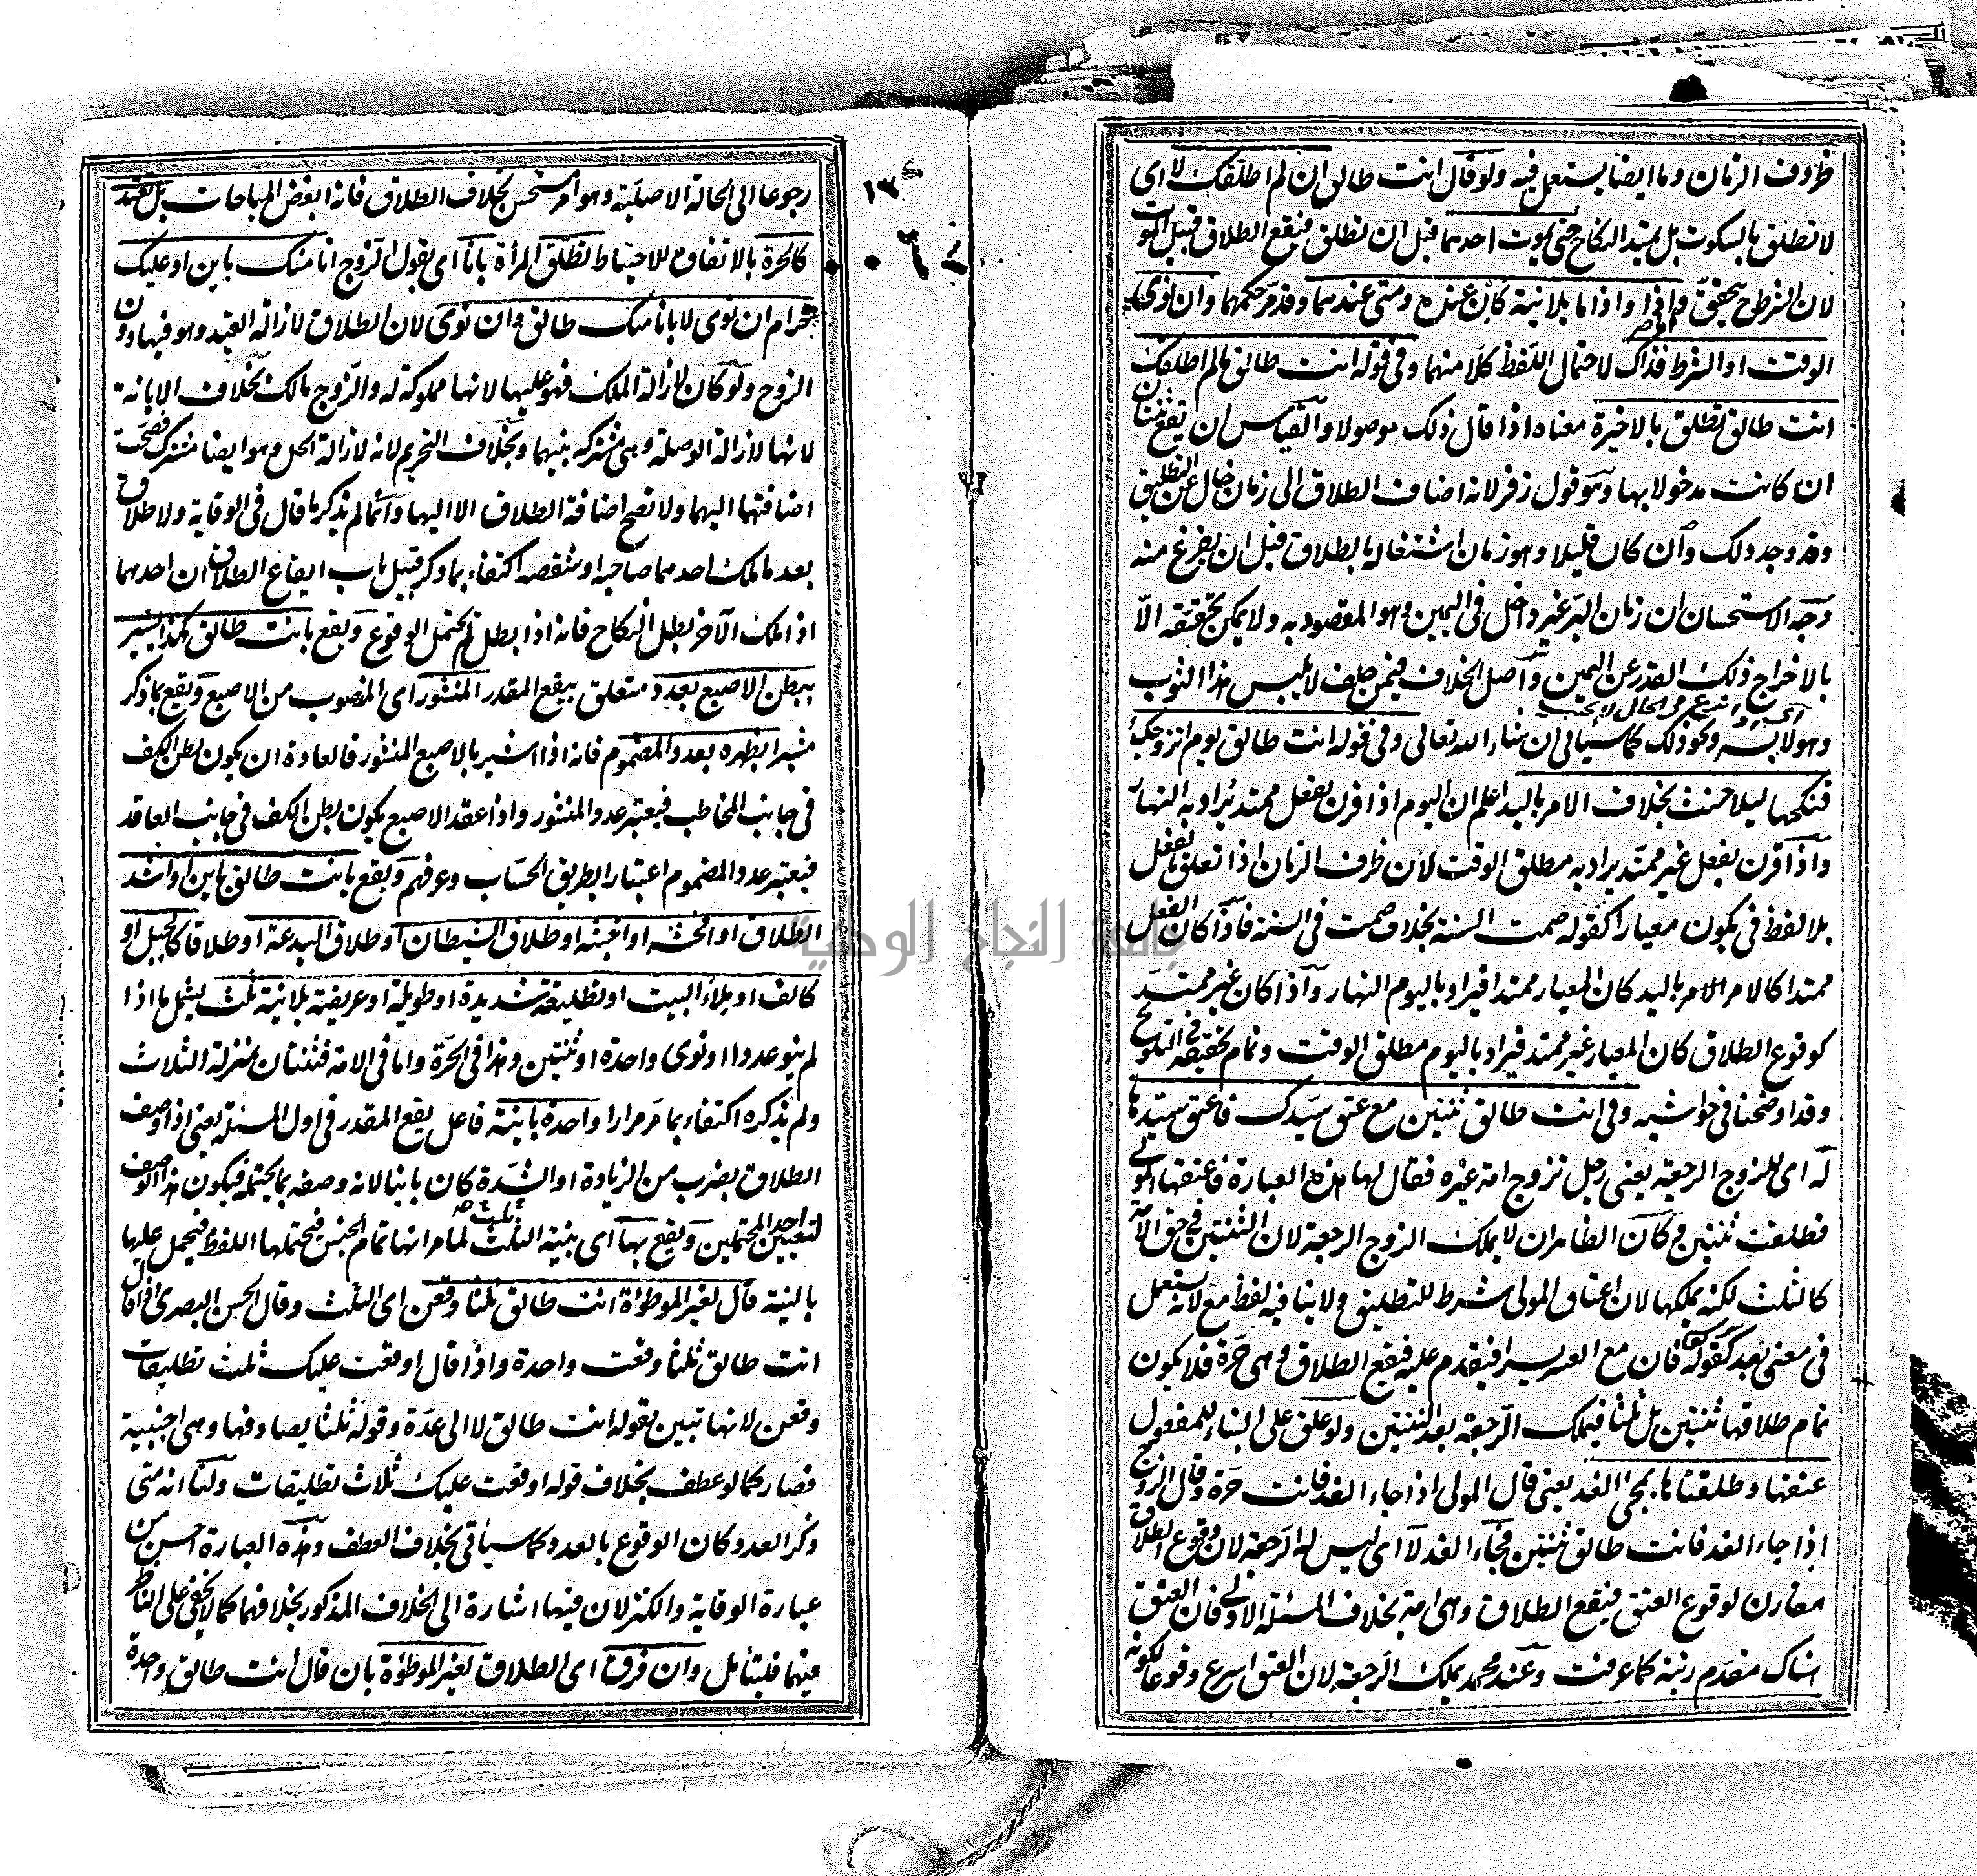 ظروف الزمان وما ايضا يستعمل فيه ولو قال انت طالق ان لم اطلقك لا اى
لا تطلق بالسكوت بل يمتد النكاح حتى يموت احدهما قبل ان تطلق فيقع الطلاق قبيل الموت
لان الشرط ح يتحقق واذا واذا ما بلا نية كان عنده ومتى عندهما وقد مر حكمهما وان نوى
الوقت او الشرط فذاك لاحتمال اللفظ كلا منهما وفى قوله انت طالق ما لم اطلقك
انت طالق تطلق بالاخيرة معناه اذا قال ذلك موصولا والقياس ان يقع ثنتان
ان كانت مدخولا بها وهو قول زفر لانه اضاف الطلاق الى زمان خال عن التطليق
وقد وجد ذلك وان كان قليلا وهو زمان اشتغاله بالطلاق قبل ان يفرغ منه
وجه الاستحسان ان زمان البر غير داخل فى اليمين وهو المقصود به ولا يمكن تحققه الا
بالاخراج ذلك القدر عن اليمين واصل الخلاف فيمن حلف لا يلبس هذا الثوب
وهو لابسه ونحو ذلك كما سياتى ان شاء الله تعالى وفى قوله انت طالق يوم اتزوجك
فنكحها ليلا حنث بخلاف الامر باليد اعلم ان اليوم اذا قرن بفعل ممتد يراد به النهار
واذا قرن بفعل غير ممتد يراد به مطلق الوقت لان ظرف الزمان اذا تعلق بالفعل
بلا لفظ فى يكون معيارا كقوله صمت السنة بخلاف صمت فى السنة فاذا كان الفعل
ممتدا كالامر الامر باليد كان المعيار ممتدا فيراد باليوم النهار واذا كان غير ممتد
كوقوع الطلاق كان المعيار غير ممتد فيراد باليوم مطلق الوقت وتمام تحقيقه فى التلويح
وقد اوضحنا فى حواشيه وفى انت طالق ثنتين مع عتق سيدك فاعتق سيدها
له اى للزوج الرجعة يعنى رجل تزوج امة غيره فقال لها هذه العبارة فاعتقها المولى
فطلقت ثنتين فكان الظاهر ان لا يملك الزوج الرجعة لان الثنتين فى حق الامة
كالثلث لكنه يملكها لان اعتاق المولى شرط للتطليق ولا ينافيه لفظ مع لانه يستعمل
فى معنى بعد كقوله فان مع العسر يسرا فيتقدم عليه فيقع الطلاق وهى حرة فلا يكون
تمام طلاقها ثنتين بل ثلثا فيملك الرجعة بعد الثنتين ولو علق على البناء للمفعول
عتقها وطلقتاها بمجئ الغد يعنى قال المولى اذا جاء الغد فانت حرة وقال الزوج
اذا جاء الغد فانت طالق ثنتين فجاء الغد لا اى ليس له الرجعة لان وقوع الطلاق
مقارن لوقوع العتق فيقع الطلاق وهى امة بخلاف المسئلة الاولى فان العتق
هناك متقدم رتبة كما عرفت وعند محمد يملك الرجعة لان العتق اسرع وقوعا لكونه
١٣٠
رجوعا الى الحالة الاصلية وهو امر مستحسن بخلاف الطلاق فانه ابغض المباحات بل تعتد
كالحرة بالاتفاق للاحتياط تطلق المرأة بانا اى بقول الزوج انا منك باين او عليك
حرام ان نوى لا بانا منك طالق وان نوى لان الطلاق لازالة القيد وهو فيها دون
الزوج ولو كان لازالة الملك فهو عليها لانها مملوكة له والزوج مالك بخلاف الابانة
لانها لازالة الوصلة وهى مشتركة بينهما وبخلاف التحريم لانه لازالة الحل وهو ايضا مشترك فصحت
اضافتها اليهما ولا تصح اضافة الطلاق الا اليها وانما لم يذكر ما قال فى الوقاية ولا طلاق
بعد ما ملك احدهما صاحبه او شقصه اكتفاء بما ذكر قبيل باب ايقاع الطلاق ان احدهما
اذا ملك الآخر بطل النكاح فانه اذا بطل لم يحتمل الوقوع ويقع بانت طالق هكذا يشير
ببطن الاصبع بعدد متعلق بيقع المقدر المنشور اى المنصوب من الاصبع ويقع بما ذكر
مشيرا بظهره بعدد المضموم فانه اذا اشير بالاصبع المنشور فالعادة ان يكون بطن الكف
فى جانب المخاطب فيعتبر عدد المنشور واذا عقد الاصبع يكون بطن الكف فى جانب العاقد
فيعتبر عدد المضموم اعتبارا بطريق الحساب وعرفهم ويقع بانت طالق باين او اشد
الطلاق او افحشه او اخبثه او طلاق الشيطان او طلاق البدعة او طلاقا كالجبل او
كالف او ملاء البيت او تطليقة شديدة او طويلة او عريضة بلا نية ثلث يشمل ما اذا
لم ينو عددا او نوى واحدة او ثنتين وهذا فى الحرة واما فى الامة فثنتان بمنزلة الثلاث
ولم يذكره اكتفاء بما مر مرارا واحدة باينة فاعل يقع المقدر فى اول المسئلة يعنى اذا وصف
الطلاق بضرب من الزيادة او الشدة كان باينا لانه وصفه بما يحتمله فيكون هذا الوصف
لتعيين احد المحتملين ويقع بها اى بنية الثلث ثلث لما مر انها تمام الجنس فيحتملها اللفظ فيحمل عليها
بالنية قال لغير الموطوءة انت طالق ثلثا وقعن اى الثلث وقال الحسن البصرى اذا قال
انت طالق ثلثا وقعت واحدة واذا قال اوقعت عليك ثلث تطليقات
وقعن لانها تبين بقوله انت طالق لا الى عدة وقوله ثلثا يصادفها وهى اجنبية
فصار كما لو عطف بخلاف قوله اوقعت عليك ثلاث تطليقات ولنا انه متى
ذكر العدد كان الوقوع بالعدد كما سيأتى بخلاف العطف وهذه العبارة احسن من
عبارة الوقاية والكنز لان فيها اشارة الى الخلاف المذكور بخلافهما كما لا يخفى على الناظر
فيهما فليتأمل وان فرق اى الطلاق لغير الموطوءة بان قال انت طالق واحدة